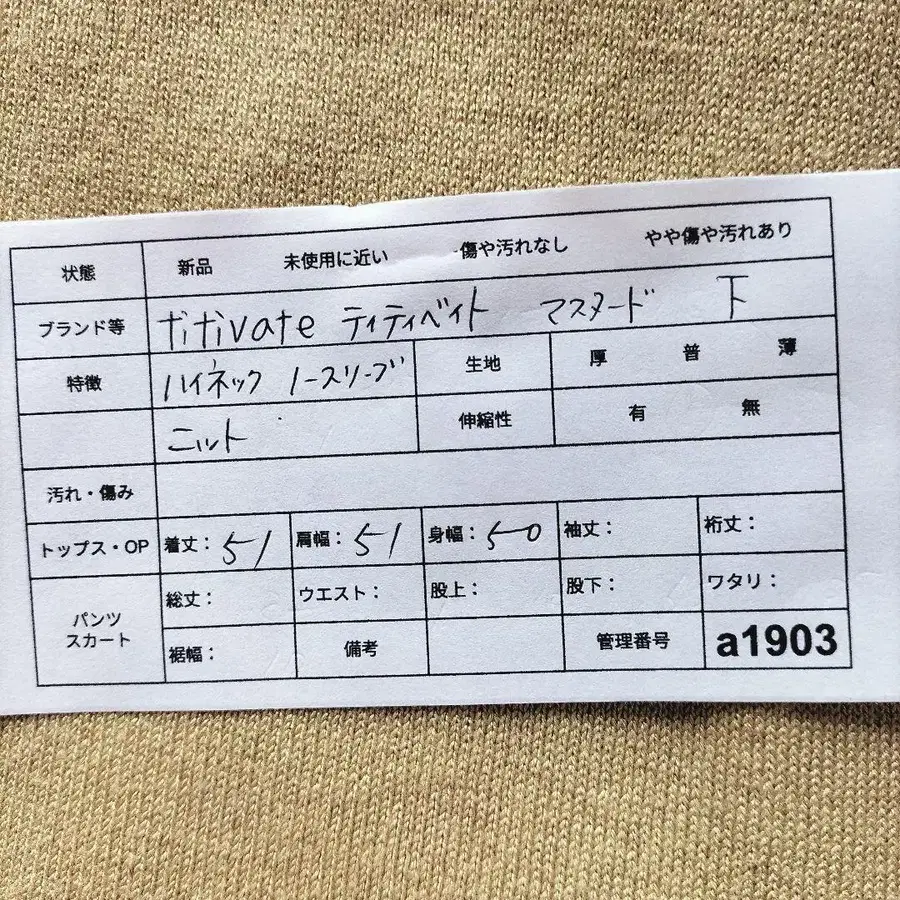 状態 新品 未使用に近い 傷や汚れなし やや傷や汚れあり
ブランド等 titivate ティティベイト マスタード 下
特徴 ハイネック ノースリーブ 生地 厚 普 薄
ニット 伸縮性 有 無
汚れ・傷み
トップス・OP 着丈：51 肩幅：51 身幅：50 袖丈： 裄丈：
パンツ スカート 総丈： ウエスト： 股上： 股下： ワタリ：
裾幅： 備考 管理番号 a1903